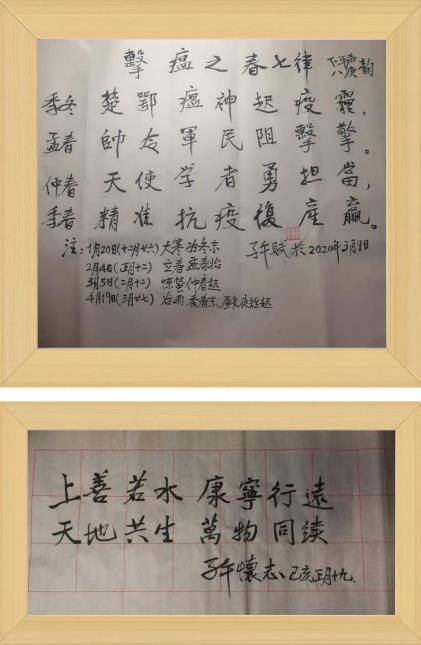 擊瘟之春七律 下平 八庚韵
季冬 楚鄂瘟神起疫霾，
孟春 帥令軍民阻擊擎。
仲春 天使学者勇担當，
季春 精准抗疫復産赢。
注：1月20日(十二月廿六) 大寒 冶冬末
2月4日(正月十二) 立春 孟春始
3月5日(二月十二) 惊蛰 仲春起
4月19日(三月廿七) 谷雨 季春末，
子午賦於2020年3月9日
上善若水 康寧行遠
天地共生 萬物同续
子午懷志 己亥正月十九